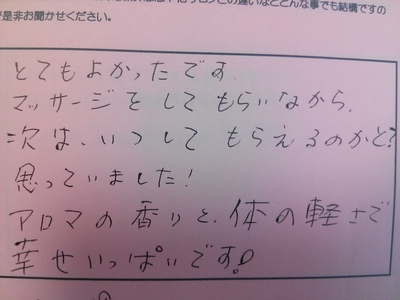 の違いなどどんな事でも結構ですの
是非お聞かせください。
とてもよかったです.
マッサージをしてもらいながら、
次は、いつしてもらえるのかと?
思っていました!
アロマの香りと、体の軽さで
幸せいっぱいです!